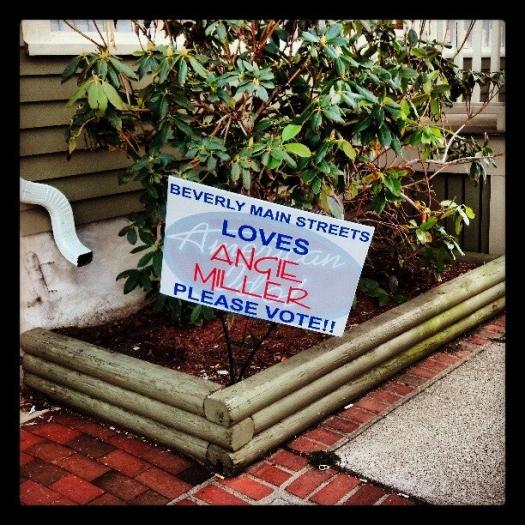 BEVERLY MAIN STREETS
LOVES
American
ANGIE
Idol
MILLER
PLEASE VOTE!!